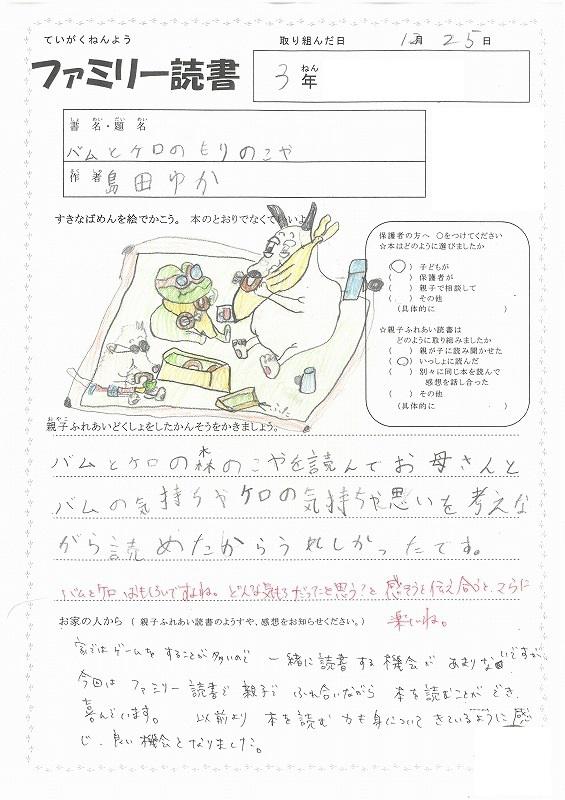 ていがくねんよう
取り組んだ日 12月25日
ファミリー読書
3年
ねん
しょ めい だい めい
書名・題名
バムとケロのもりのこや
作者
島田ゆか
すきなばめんを絵でかこう。 本のとおりでなくていいよ
保護者の方へ ○をつけてください
☆本はどのように選びましたか
(○) 子どもが
( ) 保護者が
( ) 親子で相談して
( ) その他
(具体的に )
☆親子ふれあい読書は
どのように取り組みましたか
( ) 親が子に読み聞かせた
(○) いっしょに読んだ
( ) 別々に同じ本を読んで
感想を話し合った
( ) その他
(具体的に )
ふた
おやこ
親子ふれあいどくしょをしたかんそうをかきましょう。
バムとケロの森のこやを読んでお母さんと
バムの気持ちやケロの気持ちや思いを考えな
がら読めたからうれしかったです。
バムとケロはおもしろいですよね。どんな気もちだったと思う?と感そうを伝え合うと、さらに
楽しいね。
お家の人から ( 親子ふれあい読書のようすや、感想をお知らせください。)
家ではゲームをすることが多いので 一緒に読書する機会があまりないですが
今回は ファミリー読書で親子で ふれ合いながら 本を読むことができ、
喜んでいます。 以前より 本を読む力も身についてきているように感
じ、良い機会となりました。